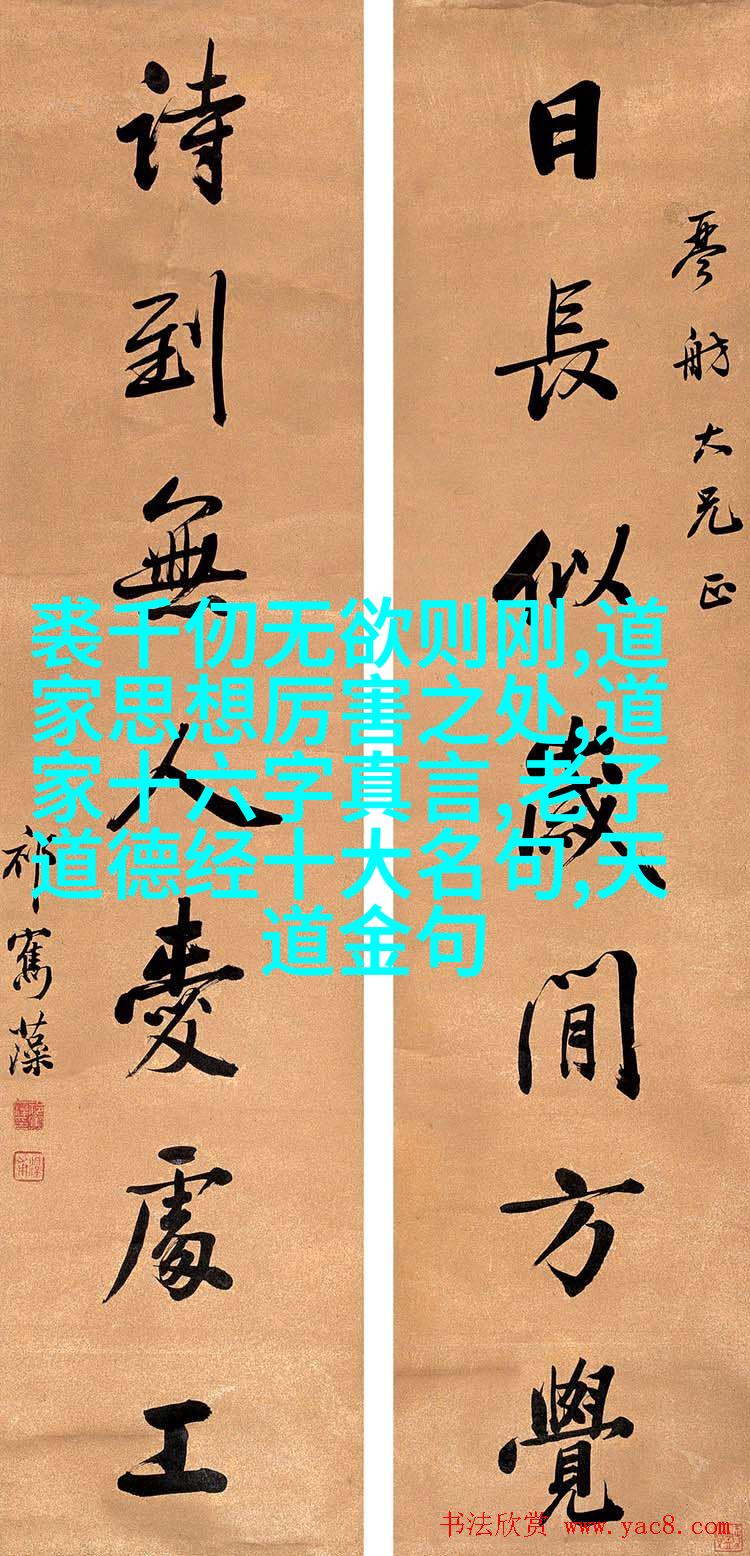 琴舫大兄正
日長似歲閒方覺
詩到無人愛處工
祁寯藻
裘千仞无欲则刚,道
家思想厉害之处,道
家十六字真言,老子
道德经十大名句,天
道金句
书法欣赏 www.yac8.com